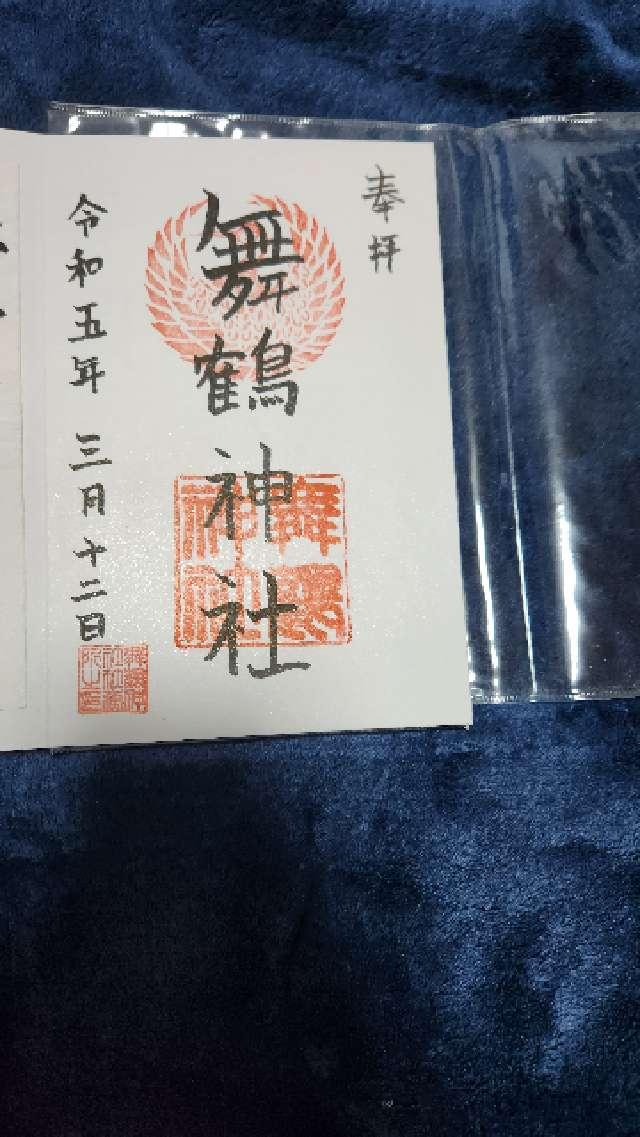 奉拝
舞鶴神社
舞鶴
神社
令和五年 三月十二日